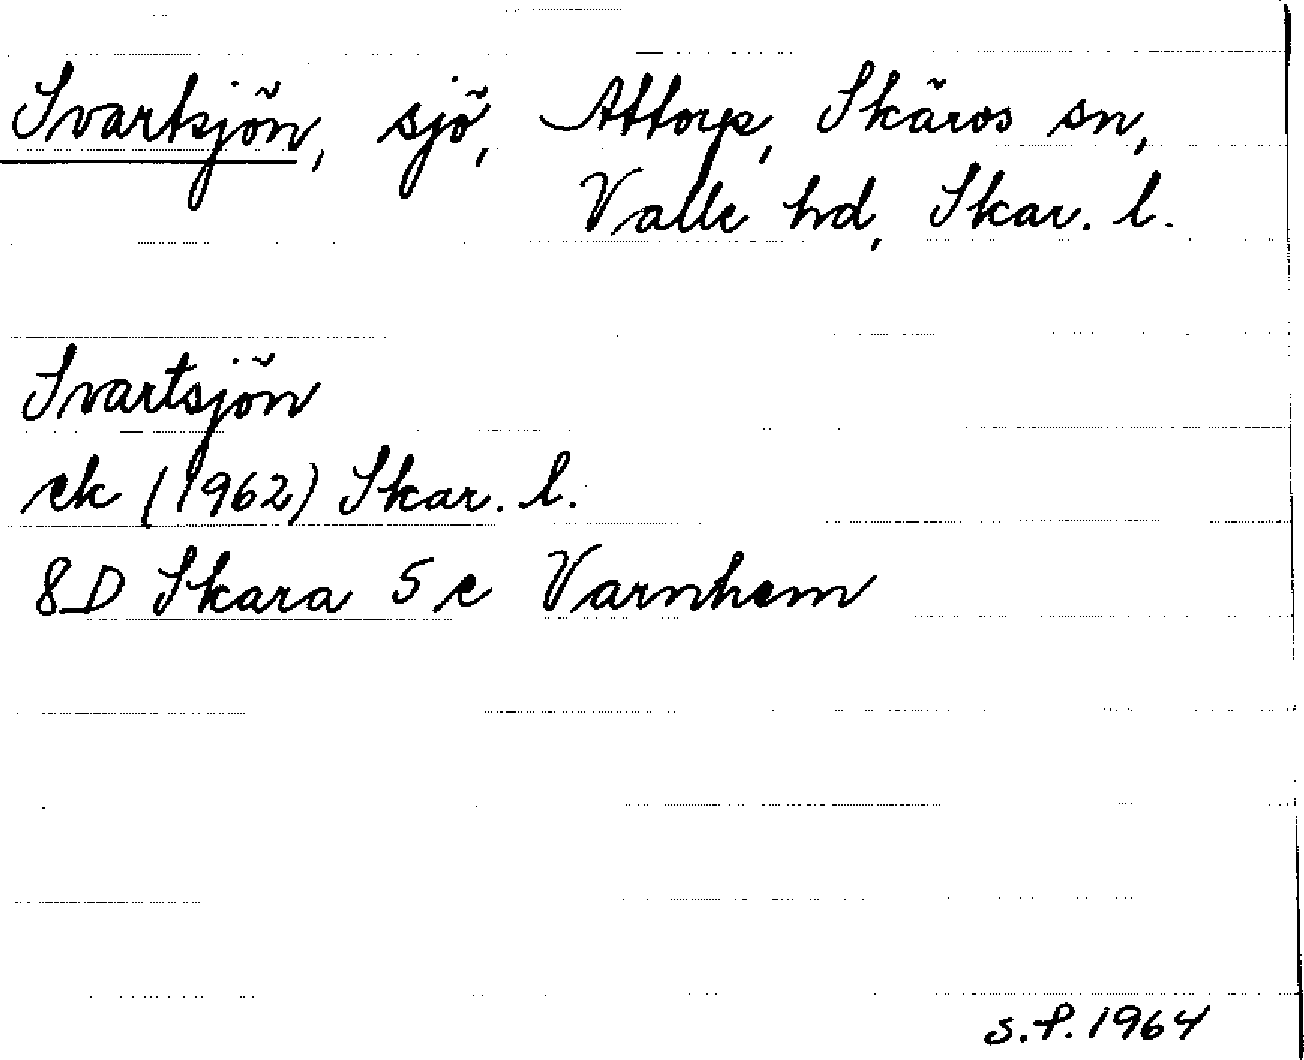 Svartsjön, sjö, Attorp, Skärvs sn,
Valle hd, Skar. l.
Svartsjön
ek (1962) Skar. l.
8D Skara 5e Varnhem
s.f. 1964